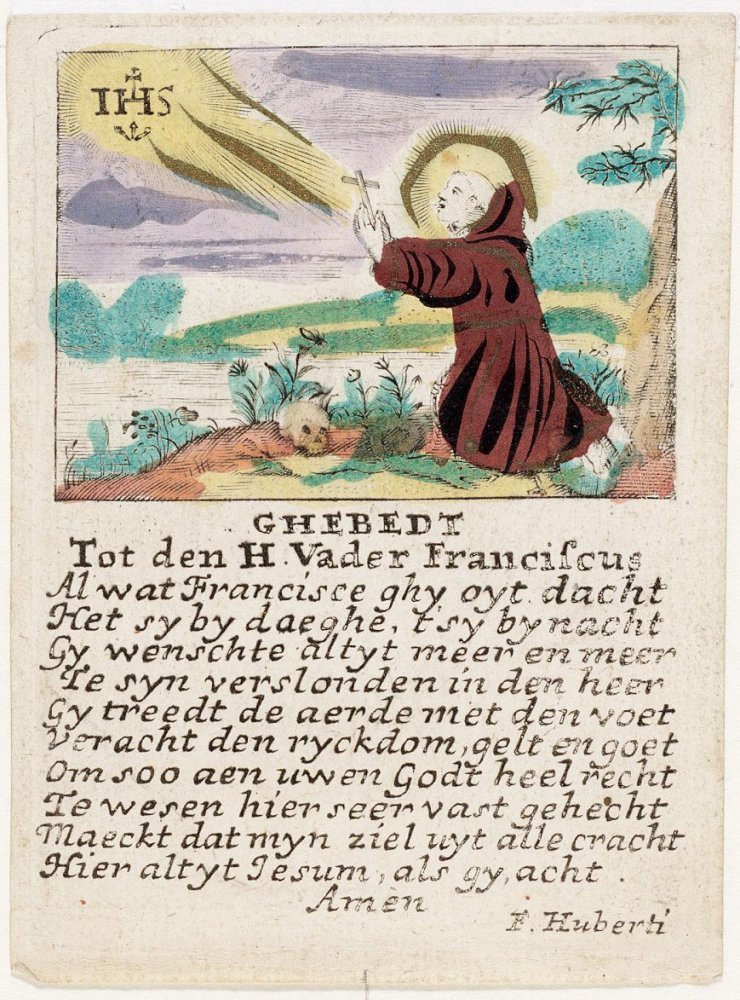 IHS
GHEBEDT
Tot den H. Vader Franciſcus
Al wat Francisce ghy oyt dacht
Het sy by daeghe, t'sy by nacht
Gy wenschte altyt meer en meer
Te syn verslonden in den heer
Gy treedt de aerde met den voet
Veracht den ryckdom, gelt en goet
Om soo aen uwen Godt heel recht
Te wesen hier seer vast gehecht
Maeckt dat myn ziel uyt alle cracht
Hier altyt Iesum, als gy, acht.
Amen
F. Huberti